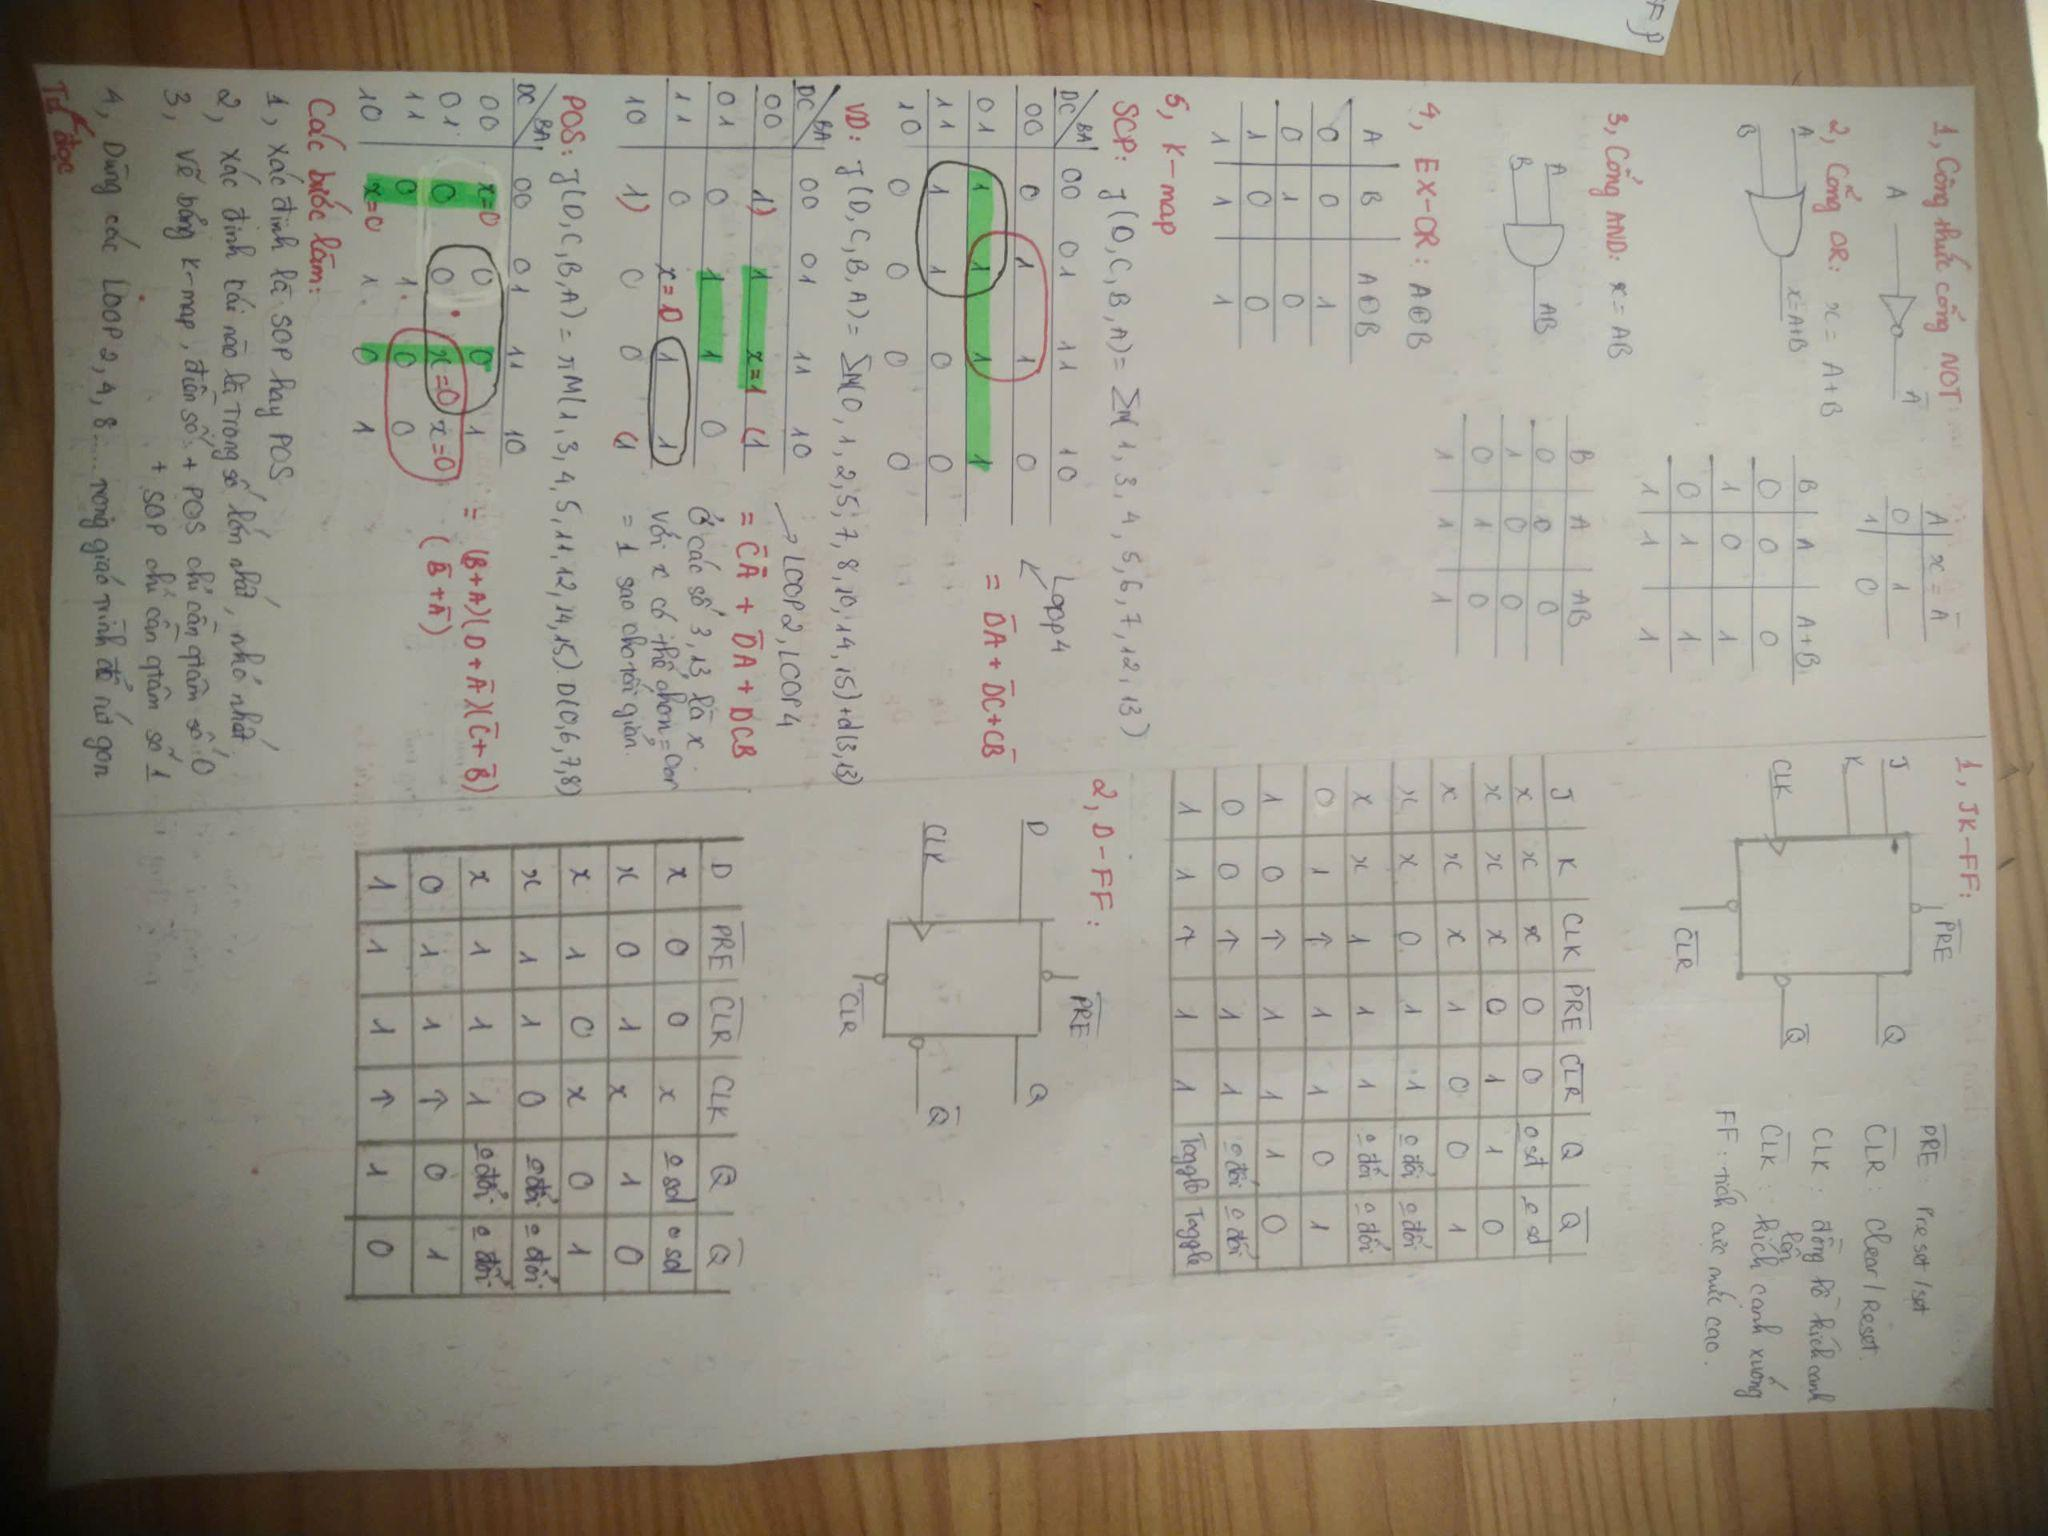 1, Công thức cổng NOT:
A
A̅
A x = A̅
0 1
1 0
2, Cổng OR: x = A+B
A
B
x=A+B
B A A+B
0 0 0
1 0 1
0 1 1
1 1 1
3, Cổng AND: x = AB
A
B
AB
B A AB
0 0 0
1 0 0
0 1 0
1 1 1
4, EX-OR: A⊕B
A B A⊕B
0 0 1
0 1 0
1 0 0
1 1 1
5, K-map
SOP: f(D,C,B,A) = ΣM(1,3,4,5,6,7,12,13)
DC/BA 00 01 11 10
00 0 1 1 0
01 1 1 1 1
11 1 1 0 0
10 0 0 0 0
Loop 4
= D̅A + D̅C + CB̅
VD: f(D,C,B,A) = ΣM(0,1,2,5,7,8,10,14,15)+d(3,13)
DC/BA 00 01 11 10
00 1) 1 x=1 (1
01 0 1 1 0
11 0 x=0 1 1
10 1) 0 0 (1
→ LOOP2, LOOP4
= C̅A̅ + D̅A + DCB
Ở các số 3,13 là x
với x có thể chọn = 0 or
= 1 sao cho tối giản.
POS: f(D,C,B,A) = πM(1,3,4,5,11,12,14,15).D(0,6,7,8)
DC/BA 00 01 11 10
00 x=0 0 0 1
01 0 0 x=0 x=0
11 0 1 0 0
10 x=0 1 0 1
= (B+A)(D+A̅)(C̅+B̅)
(B̅+A̅)
Các bước làm:
1, xác định là SOP hay POS
2, xác định cái nào là trọng số lớn nhất, nhỏ nhất.
3, vẽ bảng K-map, điền số + POS chỉ cần quan số 0
+ SOP chỉ cần quan số 1
4, Dùng các LOOP 2,4,8.... trong giáo trình để rút gọn
Tự đọc
1, JK-FF:
J
K
CLK
P̅R̅E̅
C̅L̅R̅
Q
Q̅
P̅R̅E̅: Preset/set
C̅L̅R̅: Clear/Reset.
CLK: đồng hồ kích cạnh
lên
C̅L̅K̅: kích cạnh xuống
FF: tích cực mức cao.
J K CLK P̅R̅E̅ C̅L̅R̅ Q Q̅
x x x 0 0 o sd o sd
x x x 0 1 1 0
x x x 1 0 0 1
x x 0 1 1 o đổi o đổi
x x 1 1 1 o đổi o đổi
0 1 ↑ 1 1 0 1
1 0 ↑ 1 1 1 0
0 0 ↑ 1 1 o đổi o đổi
1 1 ↑ 1 1 Toggle Toggle
2, D-FF:
D
CLK
P̅R̅E̅
C̅L̅R̅
Q
Q̅
D P̅R̅E̅ C̅L̅R̅ CLK Q Q̅
x 0 0 x o sd o sd
x 0 1 x 1 0
x 1 0 x 0 1
x 1 1 0 o đổi o đổi
x 1 1 1 o đổi o đổi
0 1 1 ↑ 0 1
1 1 1 ↑ 1 0